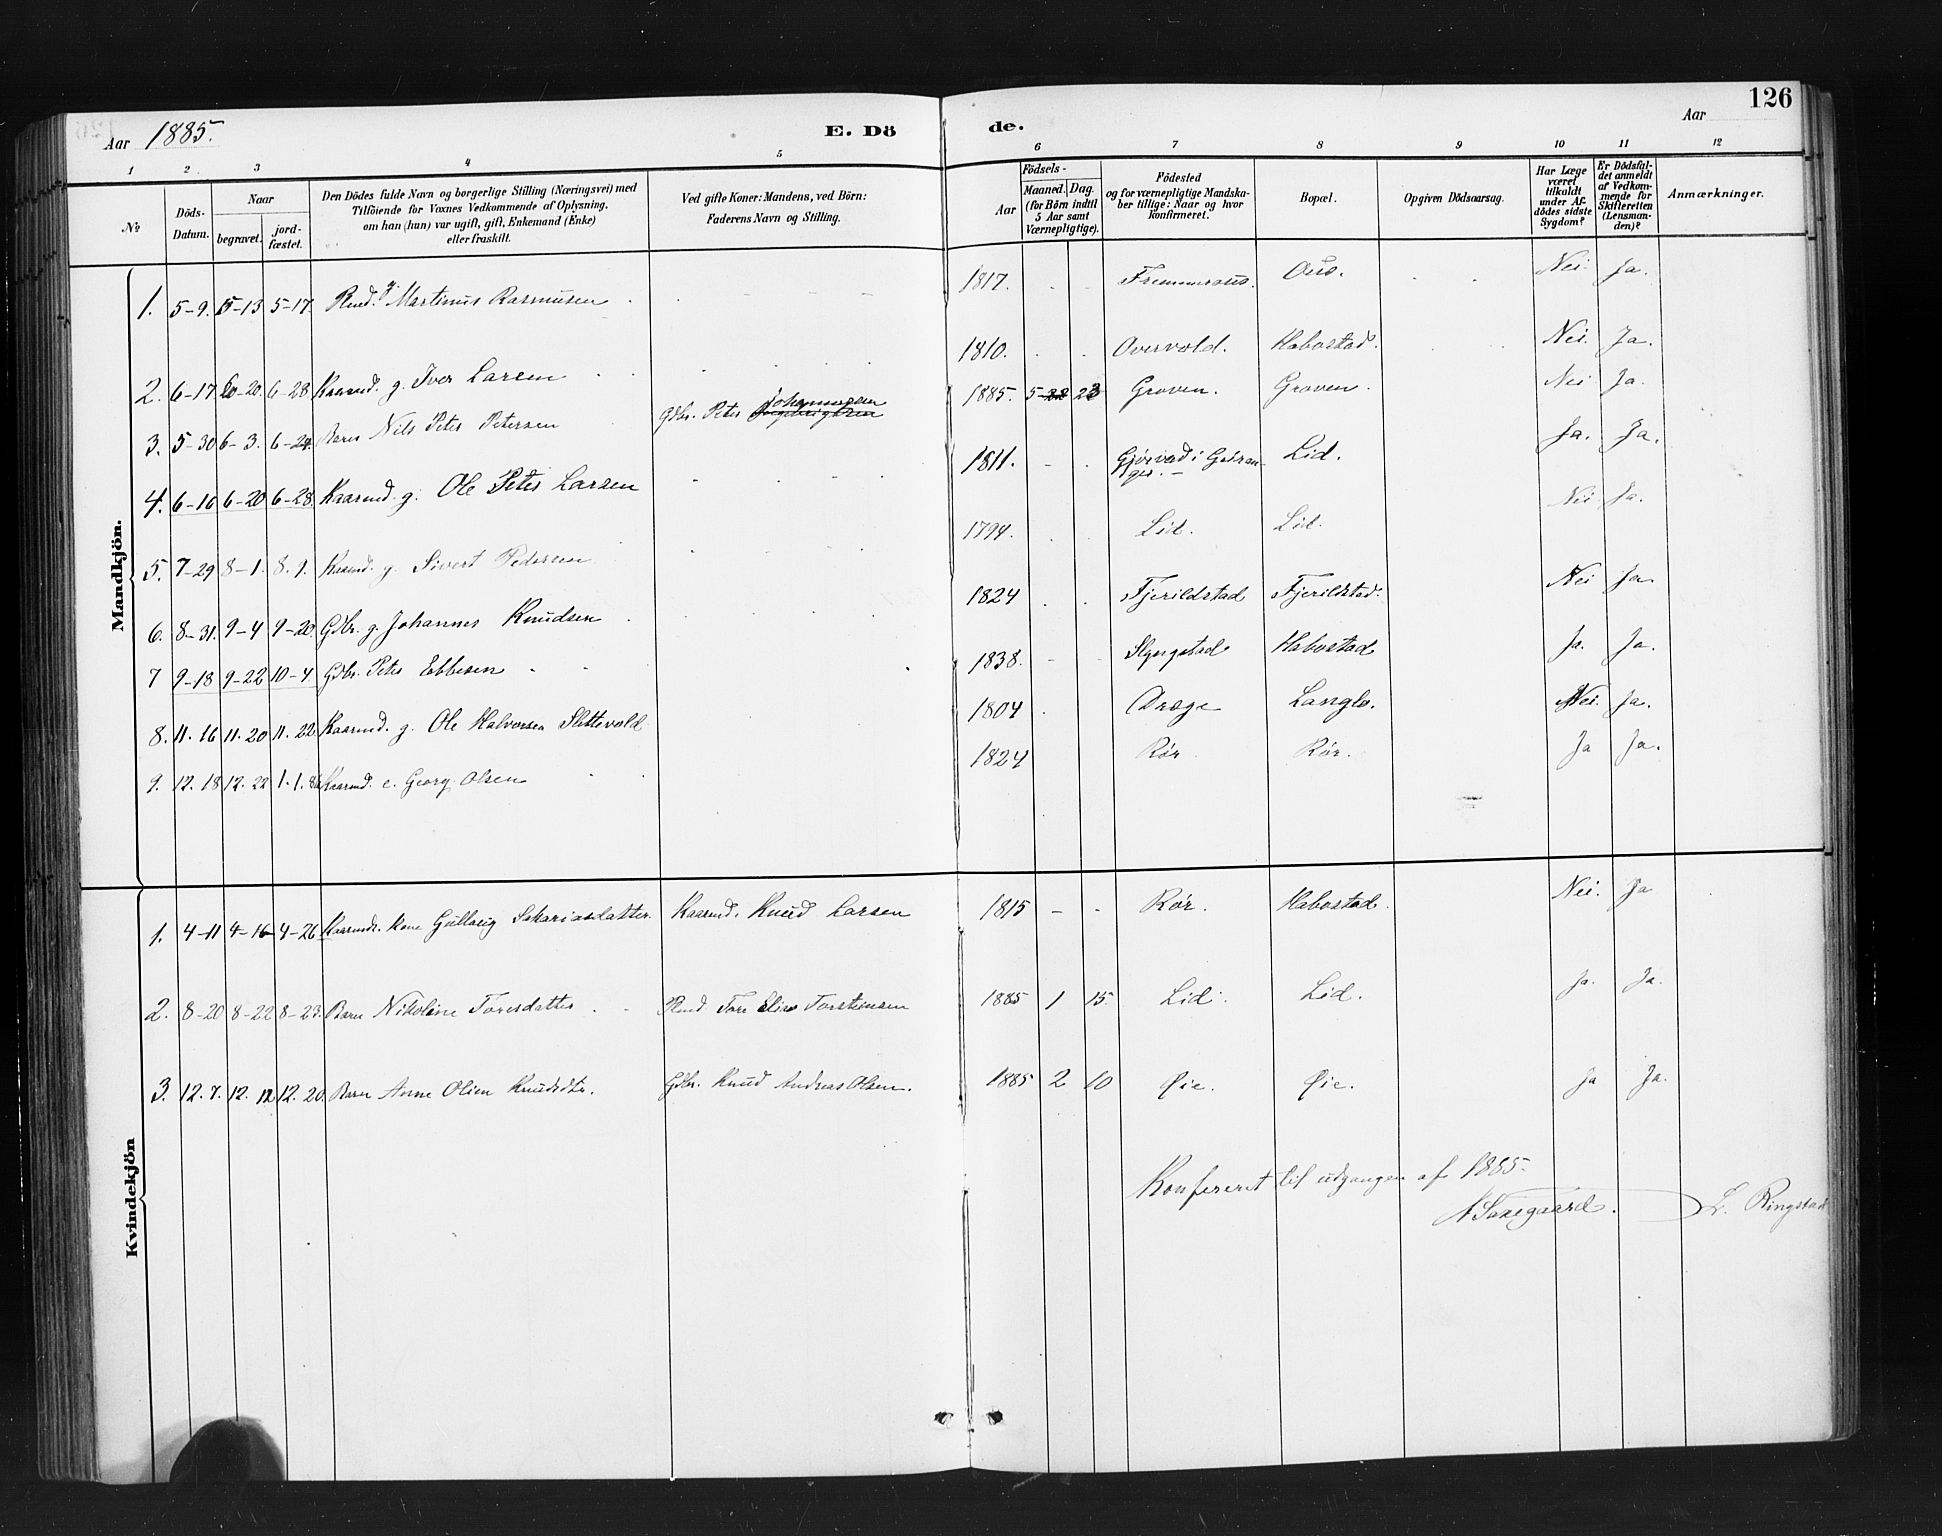 126
Aar 1885. E. Dö de. Aar
1 2 3 4 5 6 7 8 9 10 11 12
№ Döds-Datum. Naar begravet. jord-fæstet. Den Dödes fulde Navn og borgerlige Stilling (Næringsvei) med Tilföiende for Voxnes Vedkommende af Oplysning, om han (hun) var ugift, gift, Enkemand (Enke) eller fraskilt. Ved gifte Koner: Mandens, ved Börn: Faderens Navn og Stilling. Födsels- Aar Maaned. Dag. (for Börn indtil 5 Aar samt Værnepligtige). Födested og for værnepligtige Mandskaber tillige: Naar og hvor konfirmeret. Bopæl. Opgiven Dödsaarsag. Har Læge været tilkaldt under Afdödes sidste Sygdom? Er Dödsfaldet anmeldt af Vedkommende for Skifteretten (Lensmanden)? Anmærkninger.
Mandkjön.
1. 5-9. 5-13 5-17. Rmd. g. Martinus Rasmusen 1817. Nei. Ja.
2. 6-17 6-20. 6-28 Kaarmd. g. Iver Larsen 1810. Overvold. Habostad. Nei. Ja.
3. 5-30 6-3. 6-24. Barn Nils Peter Petersen Gdbr. Peter Johannesen 1885. 5 23 Groven. Groven. Nei Ja.
4. 6-16 6-20 6-28. Kaarmd. g. Ole Peter Larsen 1811. Gjørvad i Geiranger. Lid. Ja. Ja.
5. 7-29 8-1. 8.9. Kaarmd. g. Sivert Pedersen 1794. Lid. Lid. Nei Ja.
6. 8-31. 9-4 9-20. Gdbr. g. Johannes Knudsen 1824 Fjerildstad Fjerildstad. Nei Ja.
7 9-18 9-22 10-4. Gdbr. Peter Ebbesen 1838. Habostad Ja. Ja.
8. 11.16 11.20 11.22 Kaarmd. g. Ole Halvorsen Slettevold 1804 Langlo. Nei. Ja.
9. 12.18 12.22 1.1.86 Kaarmd. e. Georg Olsen 1824 Rør Rør. Ja Ja.
Kvindekjön
1. 4-11 4-16 4-26 Kaarmds. kone Gullaug Sakariasdatter. Kaarmd. Knud Larsen 1815 Rør. Habostad. Nei. Ja
2. 8-20 8-22 8-23. Barn Nikoline Toresdatter Rmd. Tore Elias Torstensen 1885 1 15. Lid. Lid. Ja. Ja.
3. 12.7. 12.12 12.20. Barn Anne Oline Knudsdtr. Gdbr. Knud Andreas Olsen. 1885 2 10 Øie. Øie. Ja Ja.
Konfereret til udgangen af 1885.
N Saxegaard. L. Ringstad